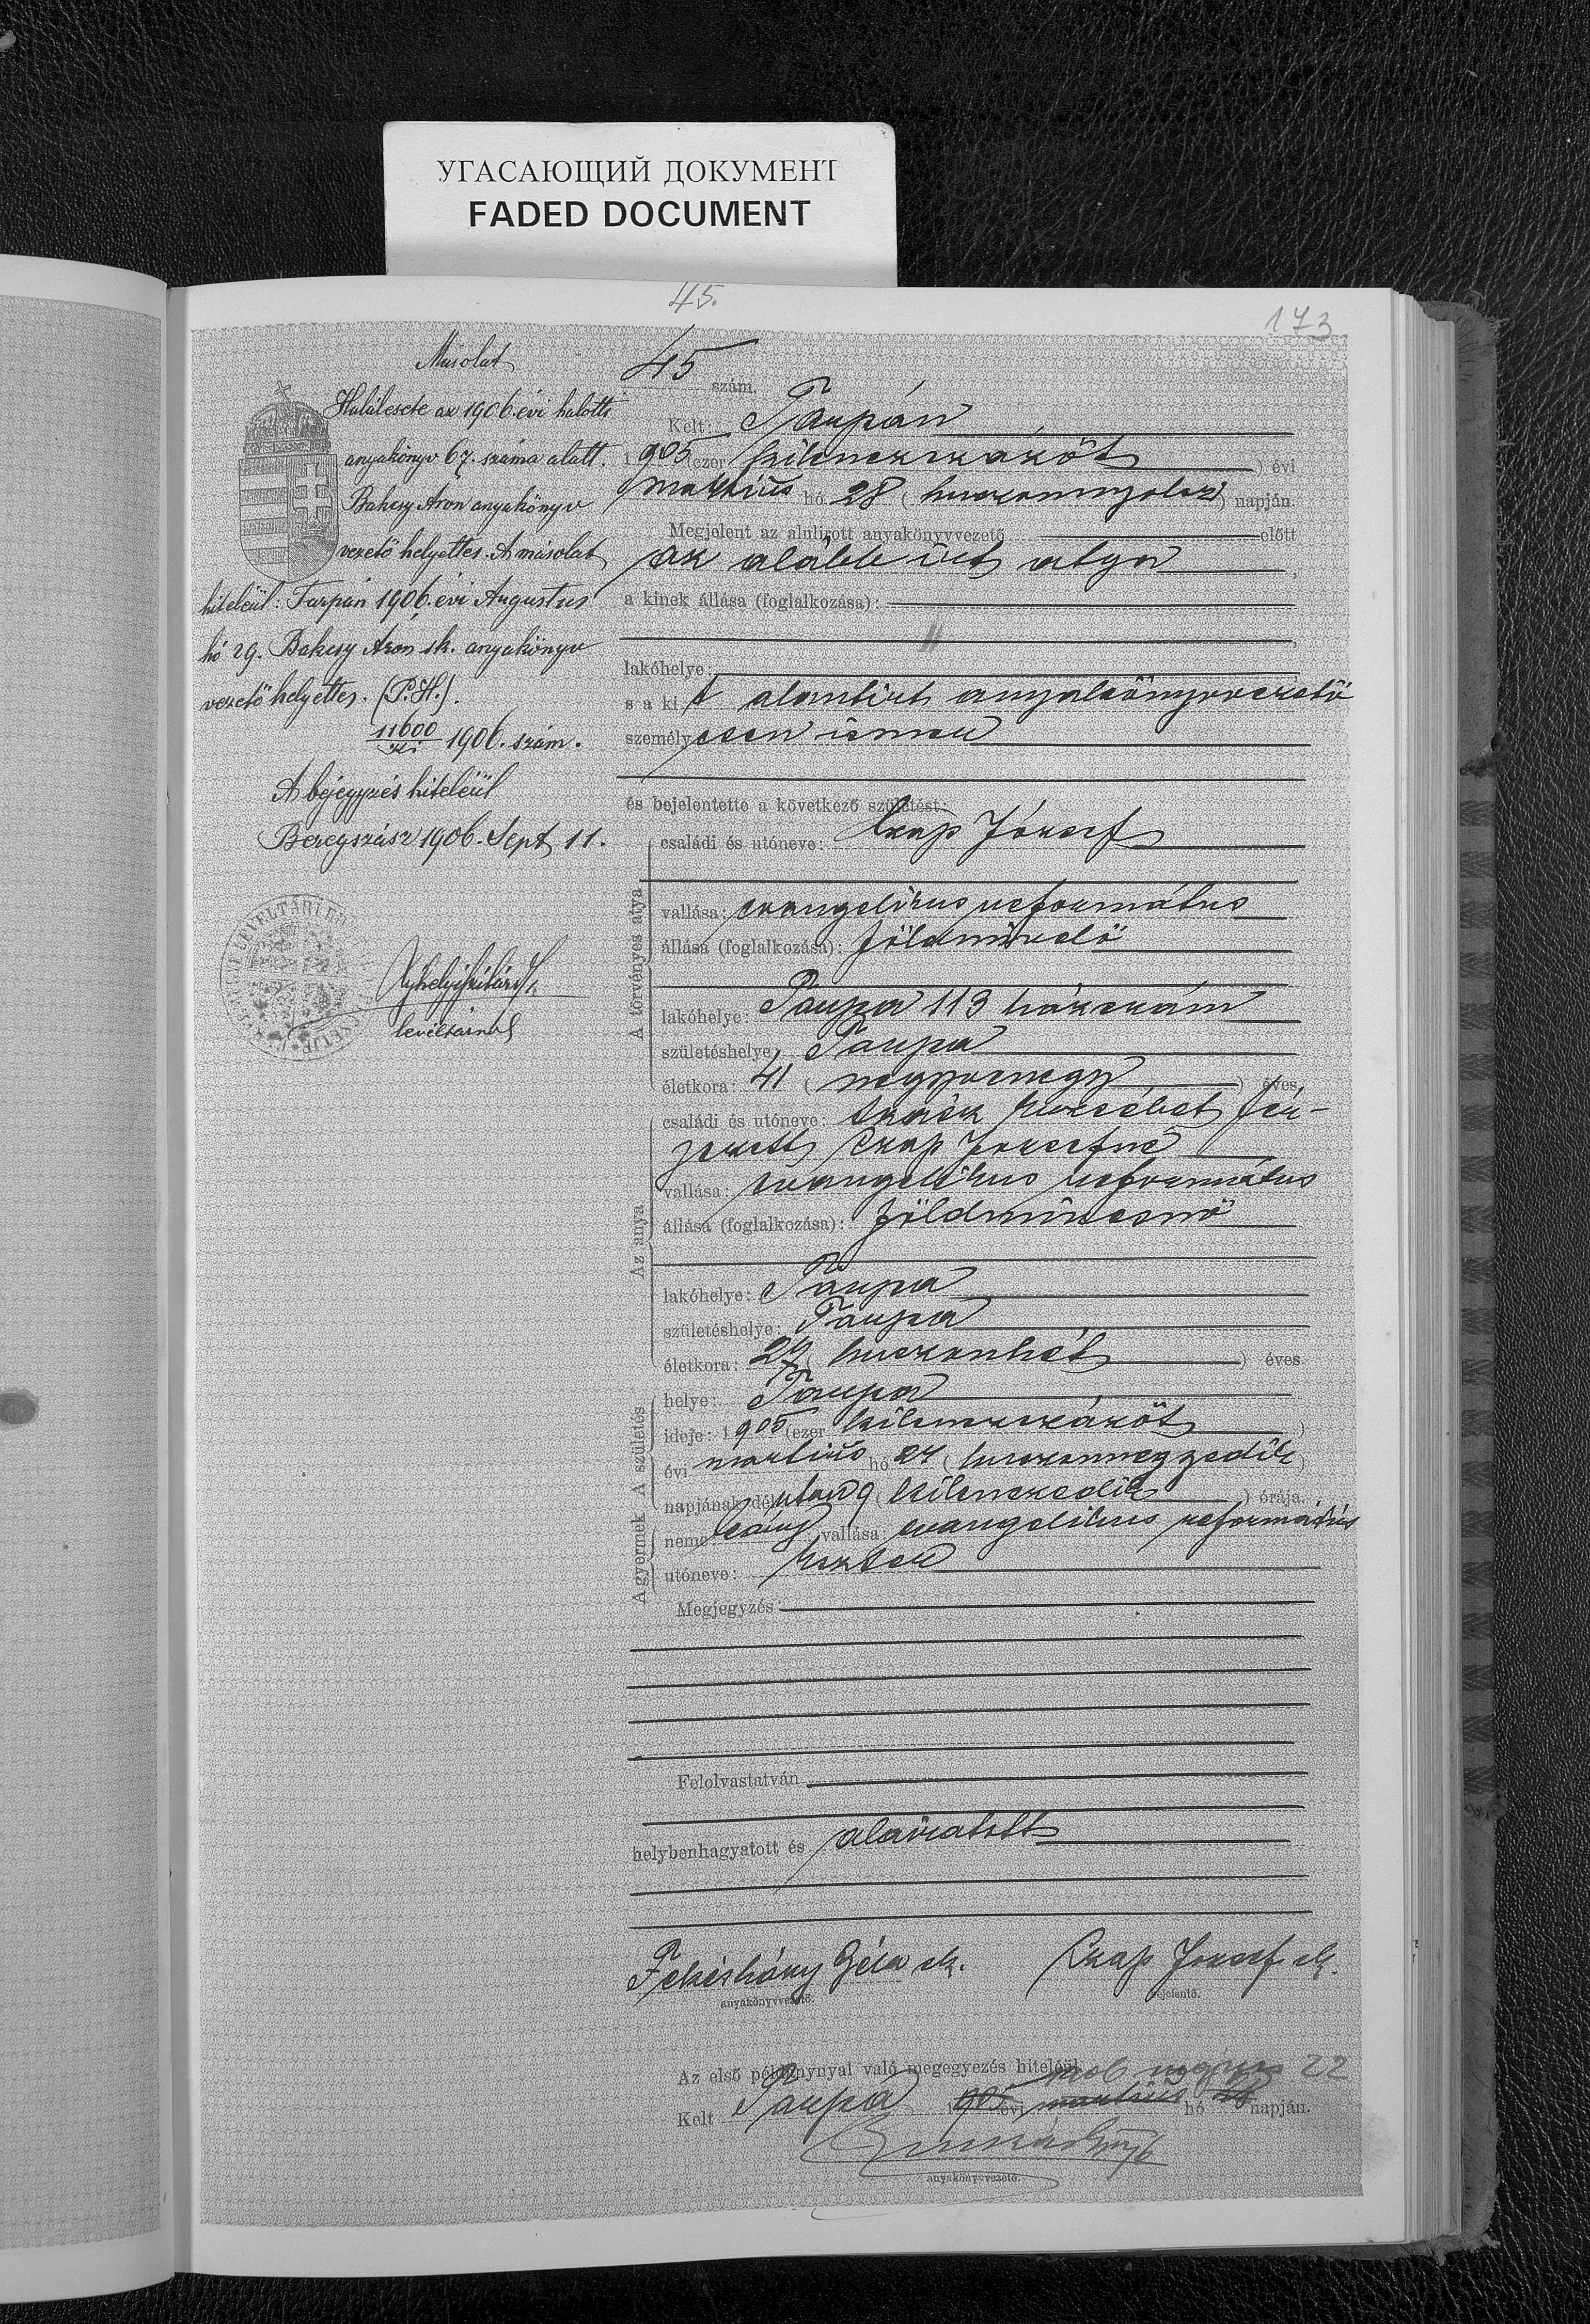 УГАСАЮЩИЙ ДОКУМЕНТ
FADED DOCUMENT
45.
173
Másolat
Halálesete az 1906. évi halotti
anyakönyv 67. száma alatt.
Bakcsy Áron anyakönyv
vezető helyettes. A másolat
hiteléül: Tarpán 1906. évi Augustus
hó 29. Bakcsy Áron sk. anyakönyv
vezető helyettes. (P.H.).
11600/ki 1906. szám.
A bejegyzés hiteléül
Beregszász 1906. Sept 11.
levéltárnok
45 szám.
Kelt: Tarpán
1905 (ezer kilenczszázöt) évi
martius hó 28 (huszonnyolcz) napján.
Megjelent az alulirott anyakönyvvezető előtt
az alább irt atya
a kinek állása (foglalkozása):
lakóhelye:
s a kit alantirt anyakönyvvezető
személyesen ismer
és bejelentette a következő születést:
A törvényes atya
családi és utóneve: Czap József
vallása: evangelikus református
állása (foglalkozása): földmivelő
lakóhelye: Tarpa 113 házszám
születéshelye: Tarpa
életkora: 41 (negyvenegy) éves.
Az anya
családi és utóneve: Erzsébet fér-
jezett Czap Józsefné
vallása: evangelikus református
állása (foglalkozása): földmivesnő
lakóhelye: Tarpa
születéshelye: Tarpa
életkora: 27 (huszonhét) éves.
A gyermek A születés
helye: Tarpa
ideje: 1905 (ezer kilenczszázöt)
évi martius hó 24 (huszonnegyedik)
napjának délután 9 (kilenczedik) órája.
neme: leány vallása: evangelikus református
utóneve: Eszter
Megjegyzés:
Felolvastatván
helybenhagyatott és aláiratott
Fekésházy Béla sk. Czap József sk.
anyakönyvvezető. bejelentő.
Az első példánynyal való megegyezés hiteléül.
1906 22
Kelt Tarpa 1905 évi martius hó napján.
anyakönyvvezető.